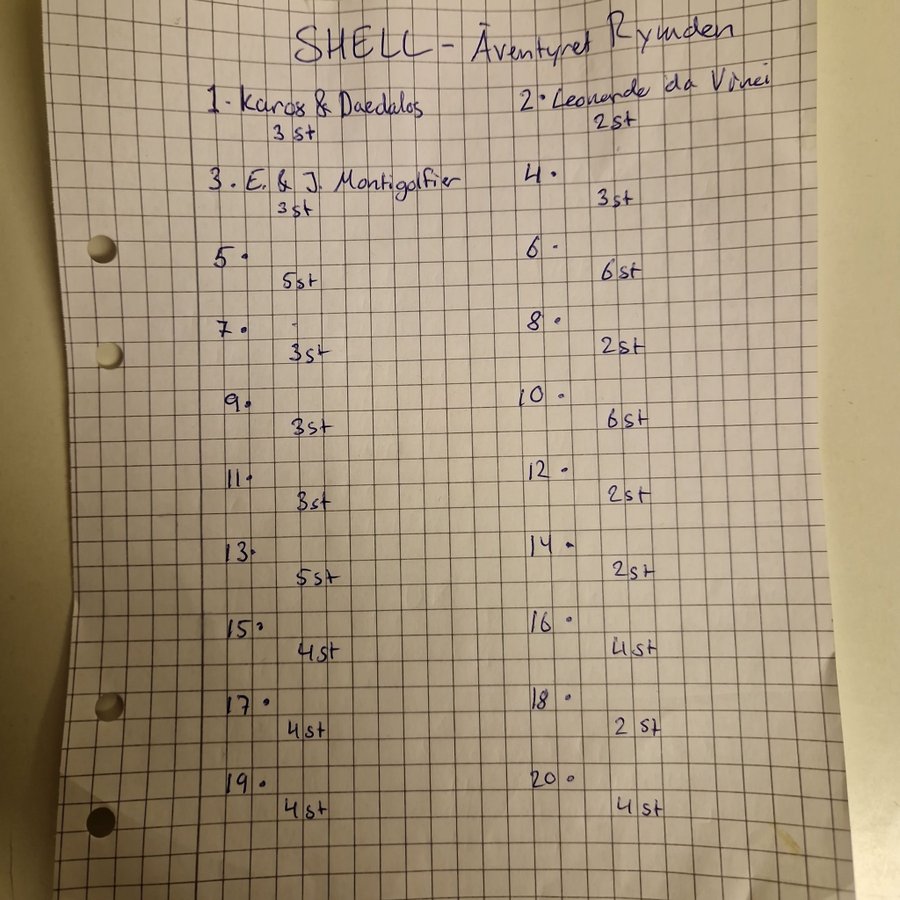 SHELL - Äventyret Rymden
1. Karos & Daedalos 2. Leonardo da Vinci
3 st 2st
3. E. & J. Montigolfier 4.
3st 3st
5. 6.
5st 6st
7. 8.
3st 2st
9. 10.
3st 6st
11. 12.
3st 2st
13. 14.
5st 2st
15. 16.
4st 4st
17. 18.
4st 2 st
19. 20.
4st 4st